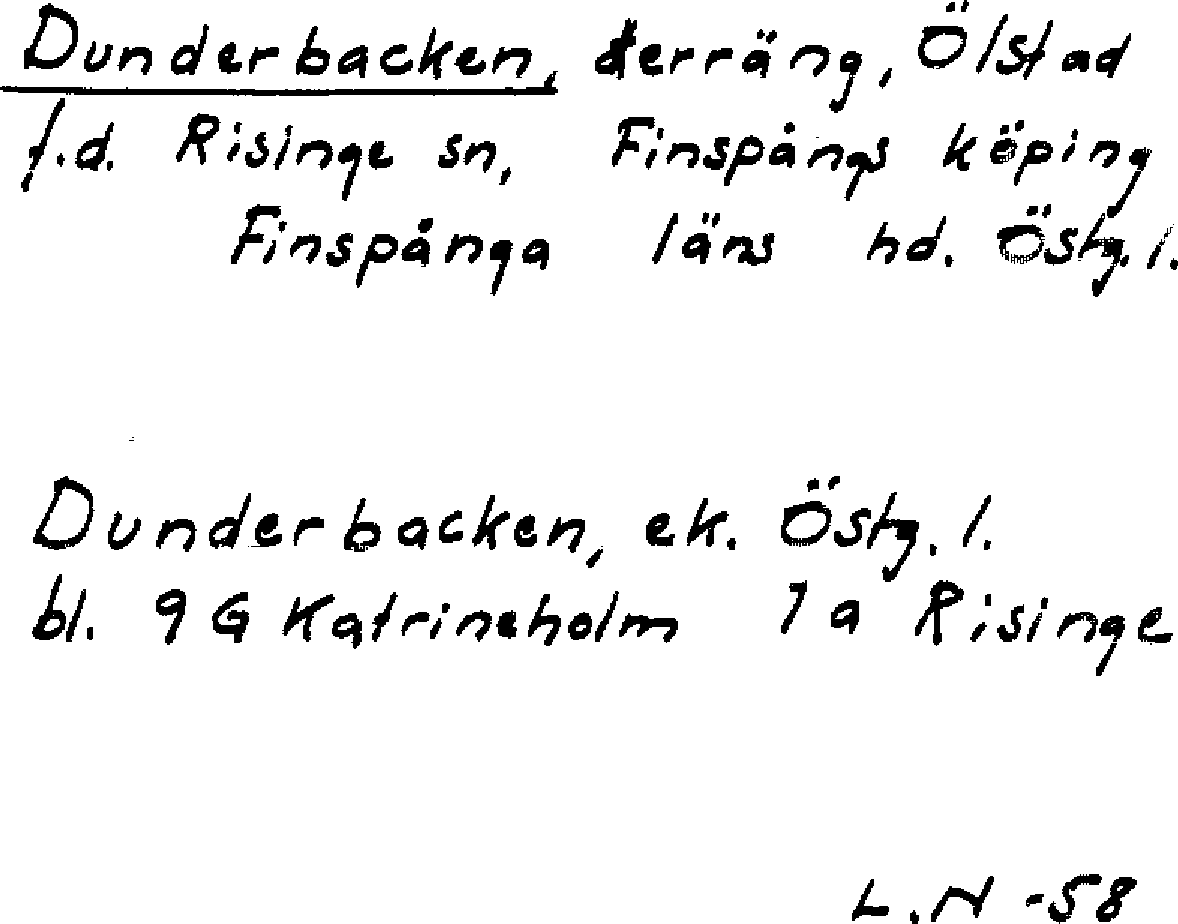 Dunderbacken, terräng, Ölstad
f.d. Risinge sn, Finspångs köping
Finspånga läns hd. Östg. l.
Dunderbacken, ek. Östg. l.
bl. 9 G Katrineholm 1 a Risinge
L.N -58